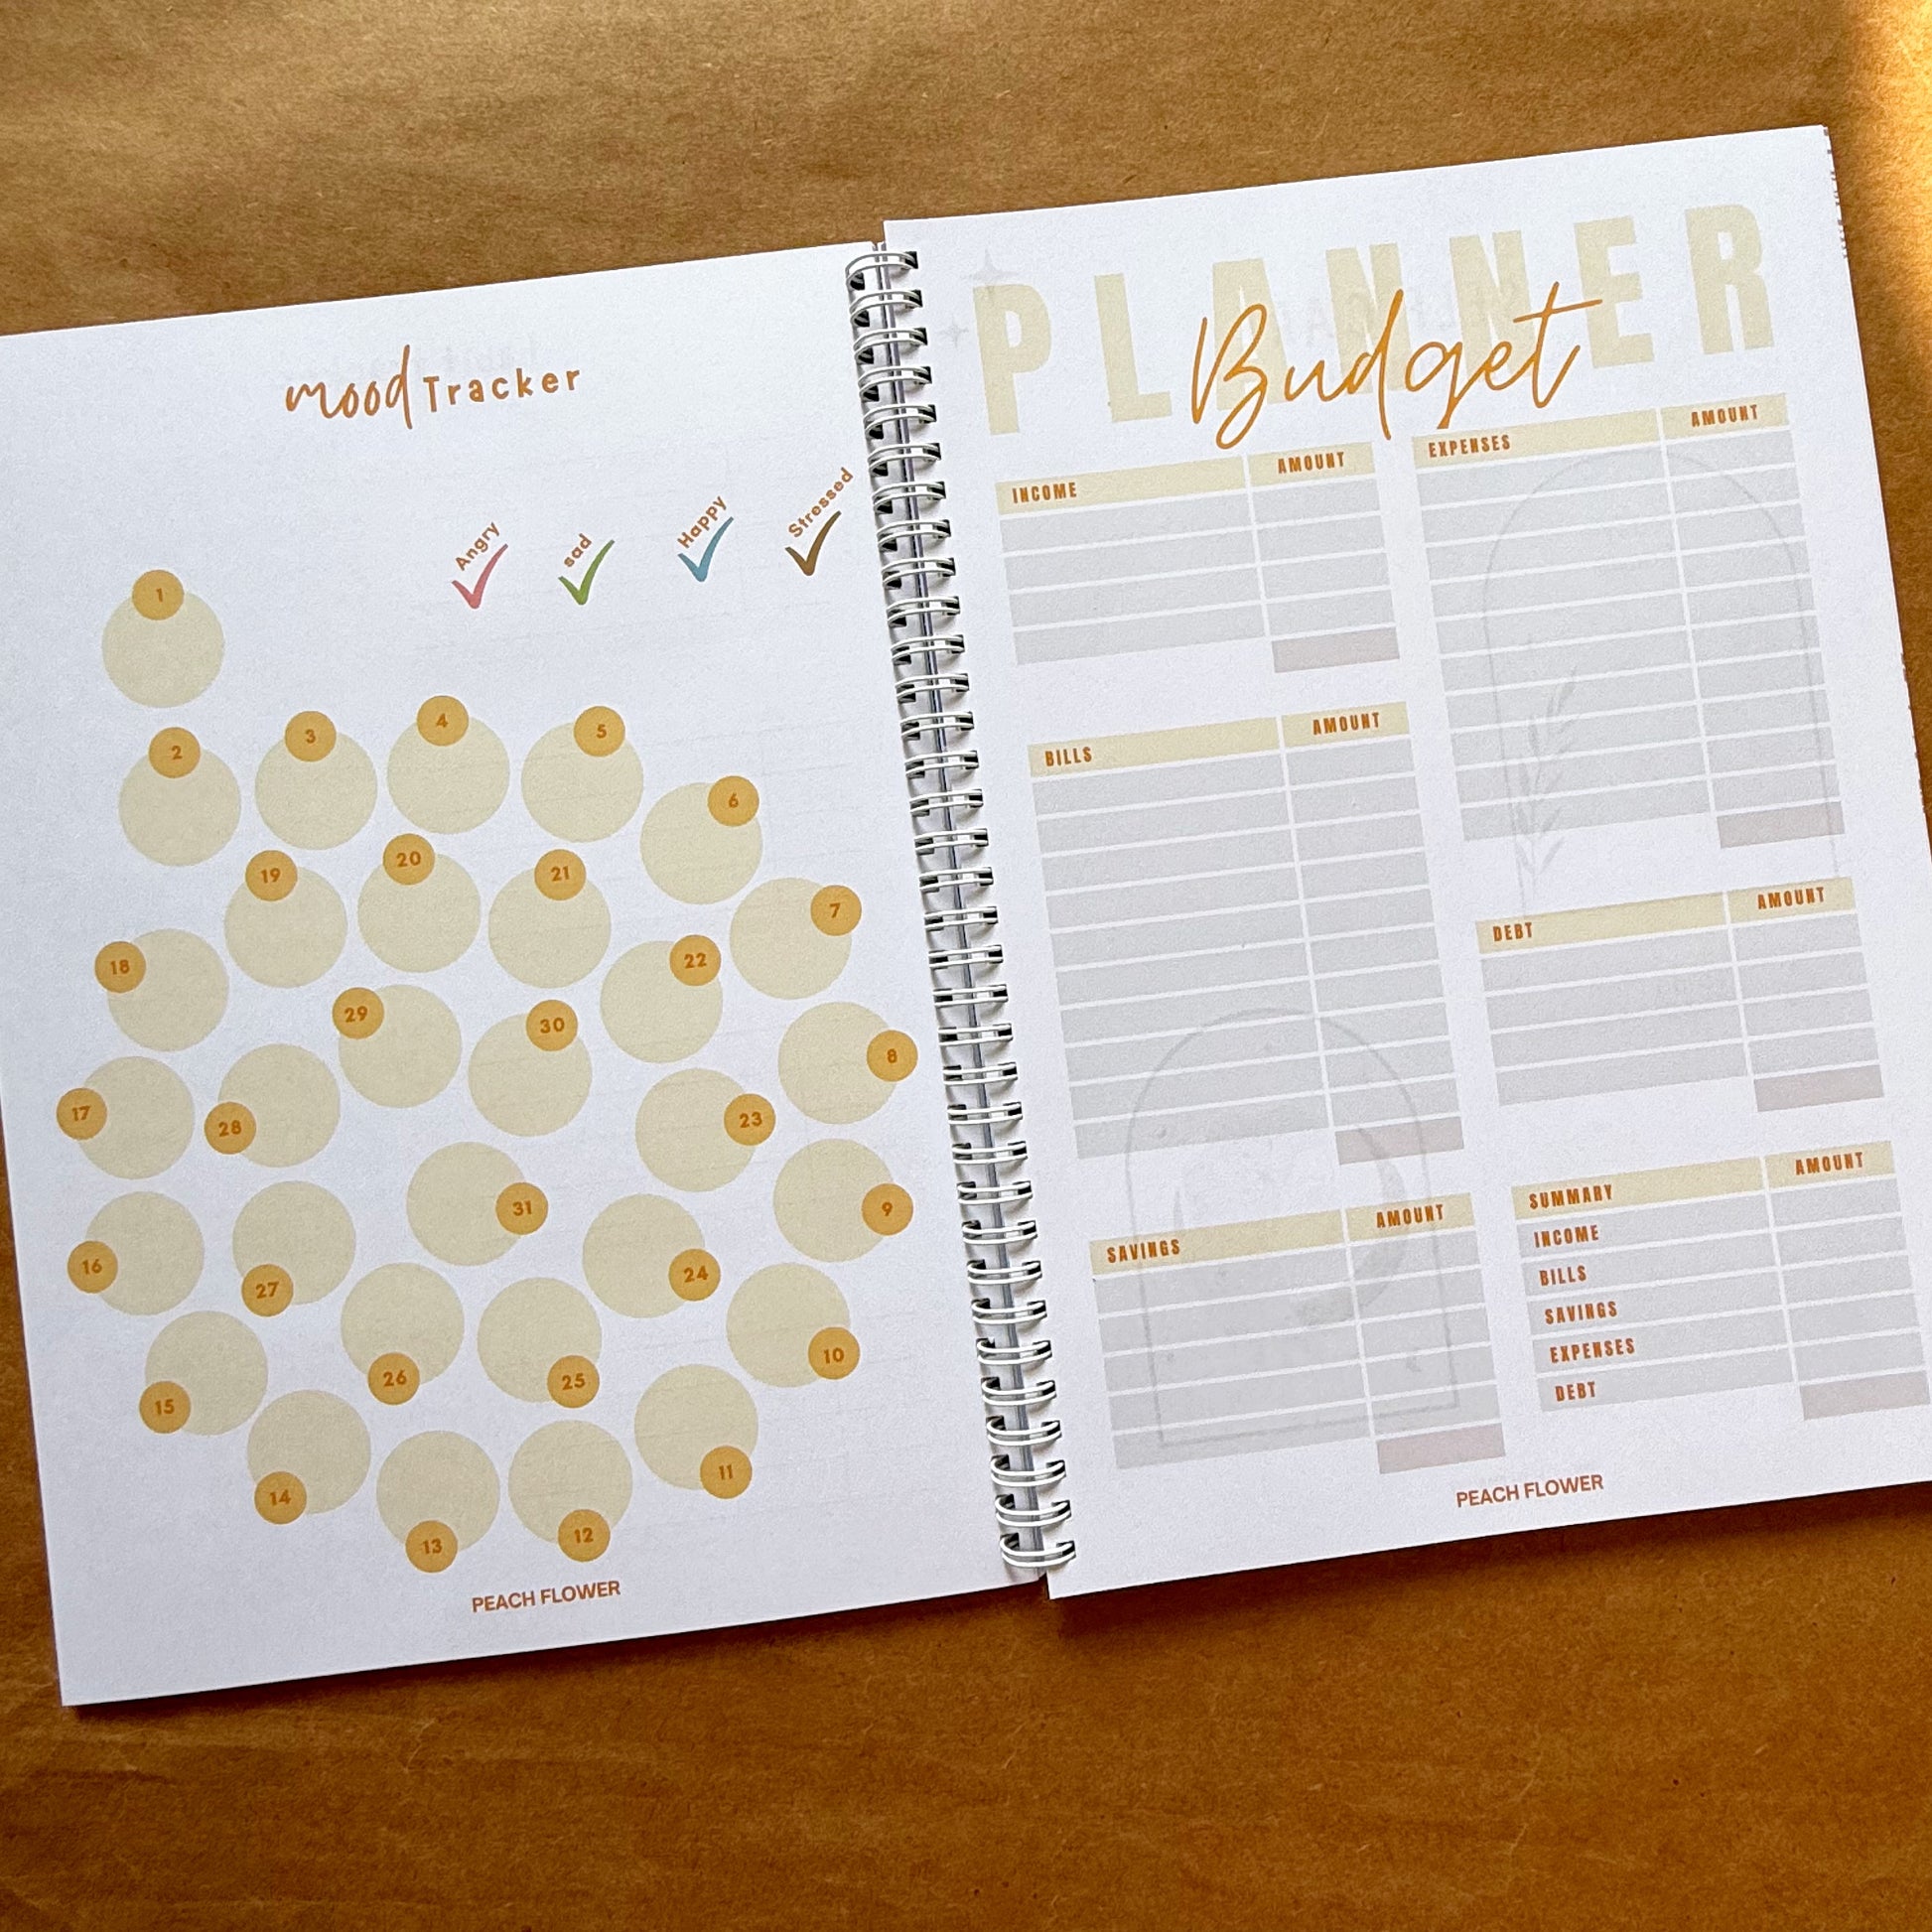 mood Tracker
Angry
sad
Happy
Stressed
1
2
3
4
5
6
7
8
9
10
11
12
13
14
15
16
17
18
19
20
21
22
23
24
25
26
27
28
29
30
31
PEACH FLOWER
PLANNER
Budget
INCOME AMOUNT
BILLS AMOUNT
SAVINGS AMOUNT
EXPENSES AMOUNT
DEBT AMOUNT
SUMMARY AMOUNT
INCOME
BILLS
SAVINGS
EXPENSES
DEBT
PEACH FLOWER